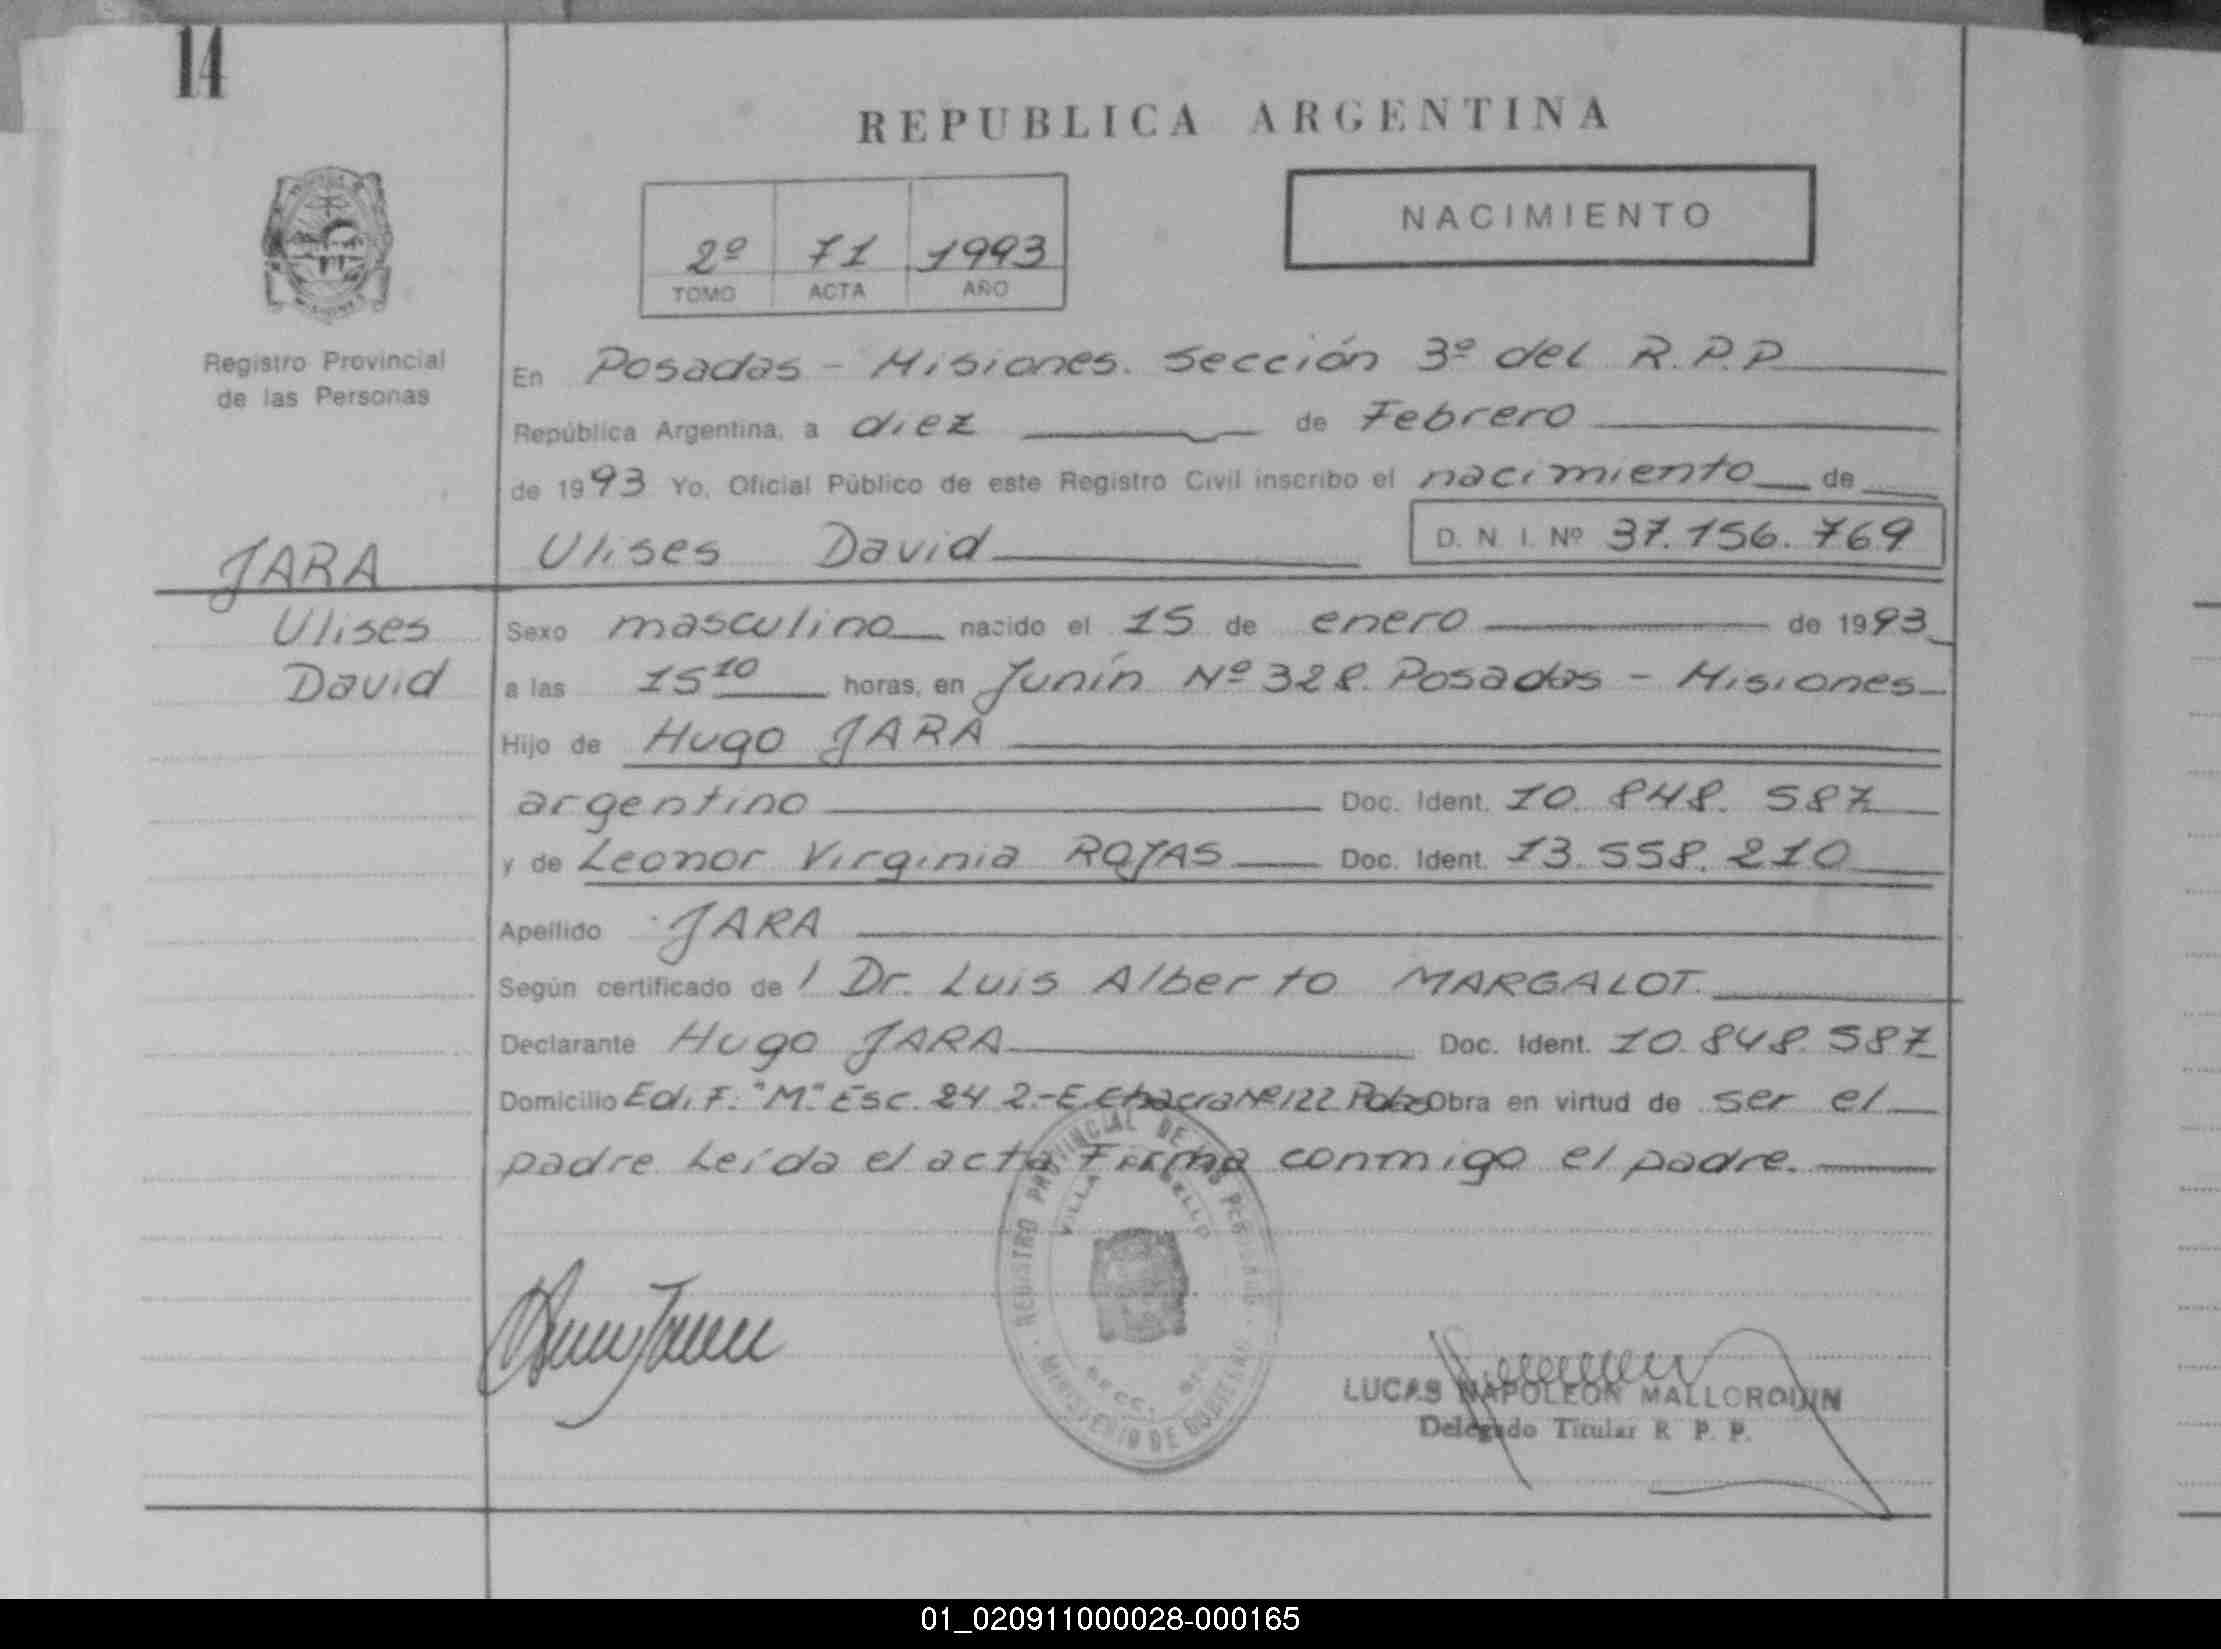 14
REPUBLICA ARGENTINA
NACIMIENTO
2º 71 1993
TOMO ACTA AÑO
Registro Provincial
de las Personas
En Posadas - Misiones. Sección 3º del R.P.P
República Argentina, a diez de Febrero
de 1993 Yo, Oficial Público de este Registro Civil inscribo el nacimiento de
Ulises David D. N. I. Nº 37.156.769
JARA
Ulises
David
Sexo masculino nacido el 15 de enero de 1993
a las 15 10 horas, en Junín Nº 328. Posadas - Misiones
Hijo de Hugo JARA
argentino Doc. Ident. 10.848.587
y de Leonor Virginia ROJAS Doc. Ident. 13.558.210
Apellido JARA
Según certificado de l Dr. Luis Alberto MARGALOT.
Declarante Hugo JARA Doc. Ident. 10.848.587
Domicilio Edif. "M" Esc. 24 2-E. Chacra Nº 122 Obra en virtud de ser el
padre Leída el acta Firma conmigo el padre.
REGISTRO PROVINCIAL DE LAS PERSONAS
VILLA
MINISTERIO DE GOBIERNO
LUCAS NAPOLEON MALLORQUIN
Delegado Titular R. P. P.
01_020911000028-000165